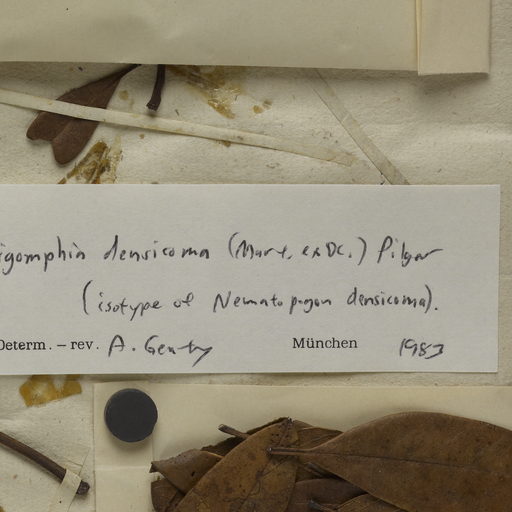 igomphia densicoma (Mart. ex DC.) Pilger
(isotype of Nematopogon densicoma).
Determ. – rev. A. Gentry München 1983